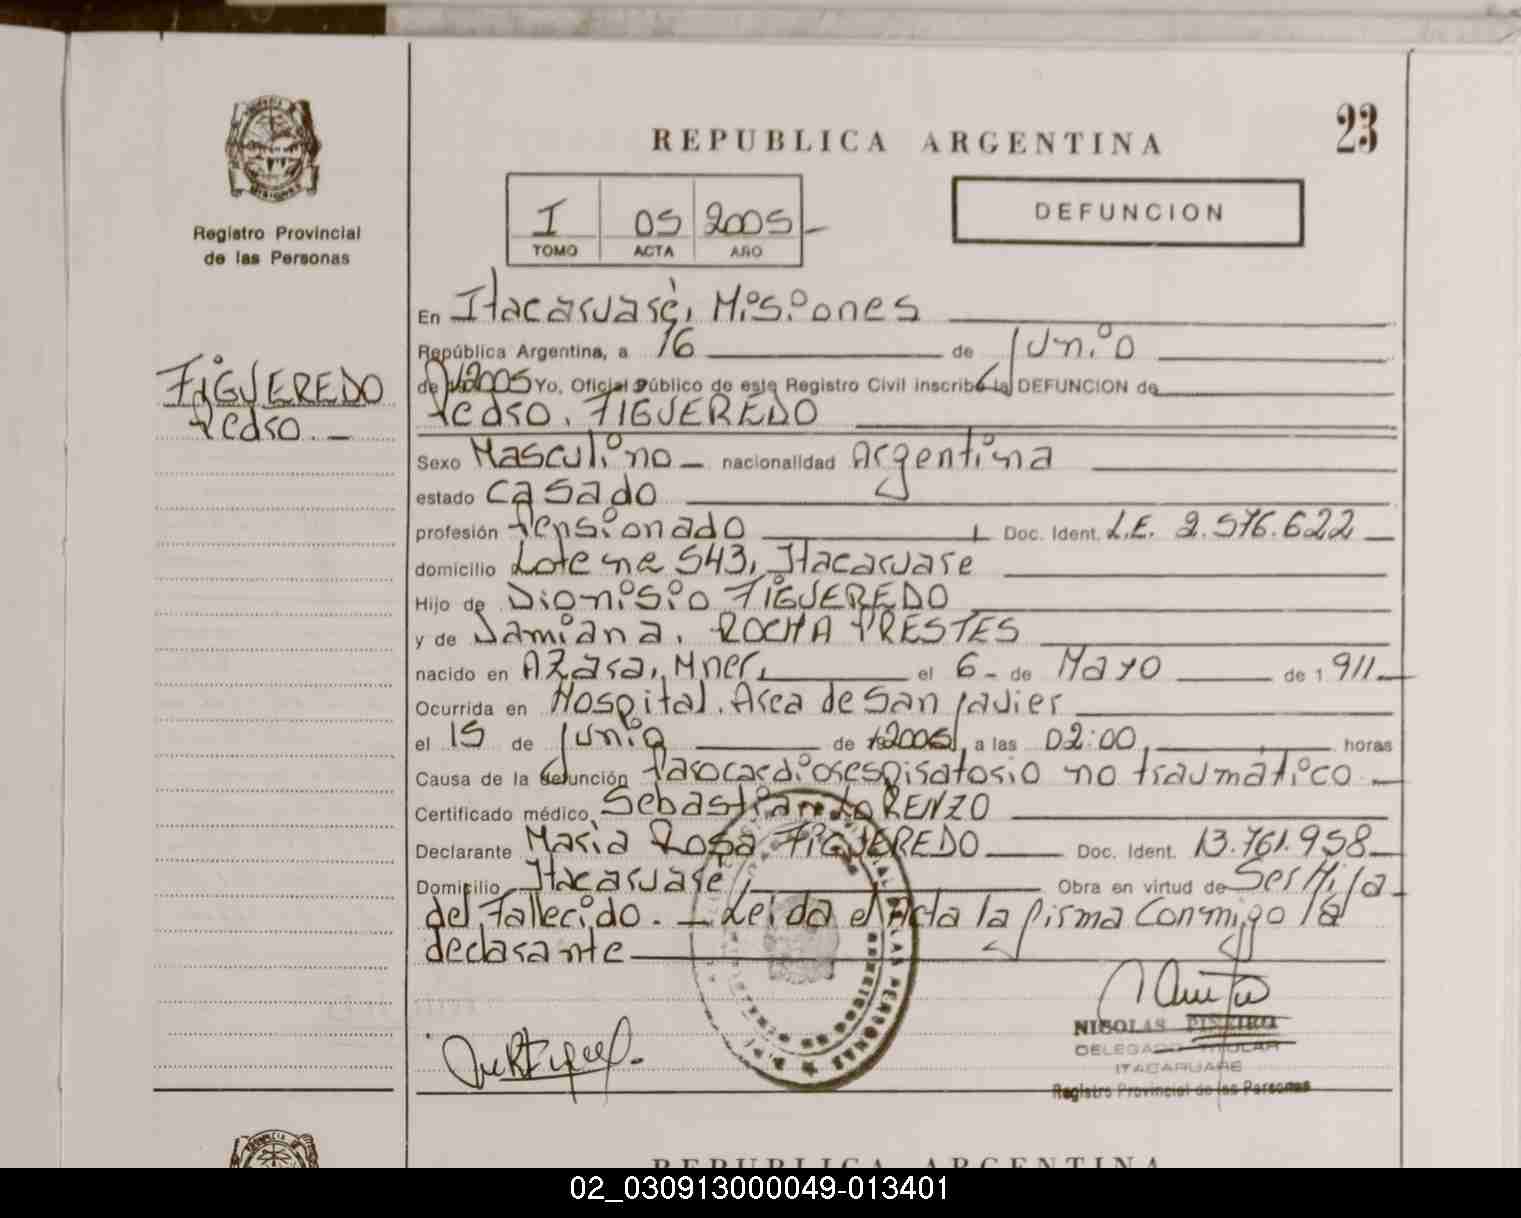 REPUBLICA ARGENTINA
23
I 05 2005
TOMO ACTA AÑO
DEFUNCION
Registro Provincial
de las Personas
FIGUEREDO
Pedro.
En Itacaruaré, Misiones
República Argentina, a 16 de Junio
de 2005 Yo, Oficial Público de este Registro Civil inscribo la DEFUNCION de
Pedro. FIGUEREDO
Sexo Masculino nacionalidad Argentina
estado casado
profesión Pensionado Doc. Ident. L.E. 2.576.622
domicilio Lote nº 543, Itacaruare
Hijo de Dionisio FIGUEREDO
y de Damiana. ROCHA PRESTES
nacido en Azara, Mnes, el 6 de Mayo de 1911
Ocurrida en Hospital. Area de San Javier
el 15 de Junio de 2005, a las 02:00, horas
Causa de la defunción Parocardiorespiratorio no traumatico
Certificado médico, Sebastian LORENZO
Declarante Maria Rosa FIGUEREDO Doc. Ident. 13.761.958
Domicilio Itacaruare, Obra en virtud de Ser Hija
del Fallecido. Leida el Acta la firma Conmigo la
declarante
NICOLAS PIÑEIRO
DELEGADO TITULAR
ITACARUARE
Registro Provincial de las Personas
REPUBLICA ARGENTINA
02_030913000049-013401